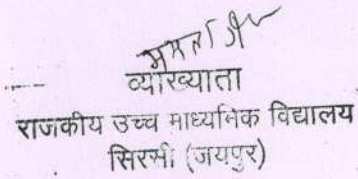 व्याख्याता
राजकीय उच्च माध्यमिक विद्यालय
सिरसी (जयपुर)